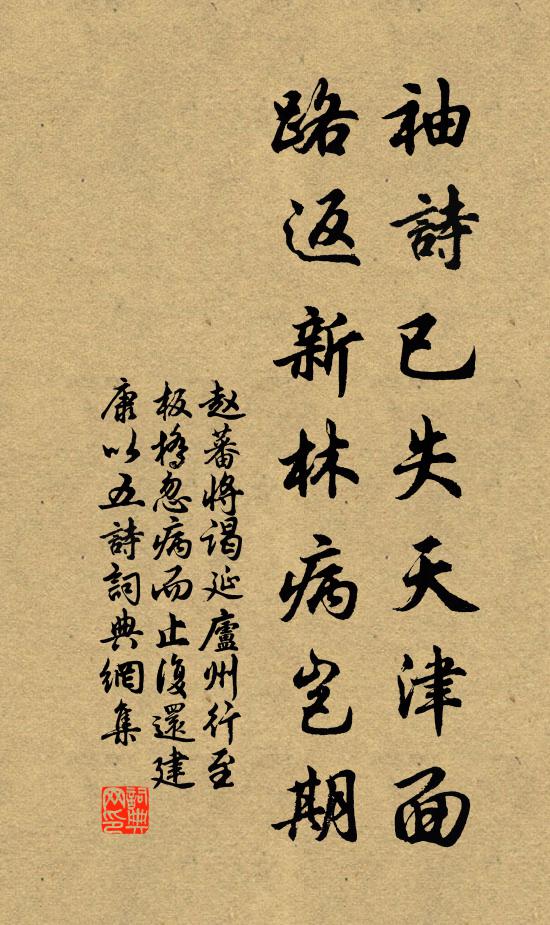 袖詩已失天津面
路返新林病豈期
赵蕃将谒延廬州行至
板橋忽病而止復還建
康以五詩詞典網集
詞典网印